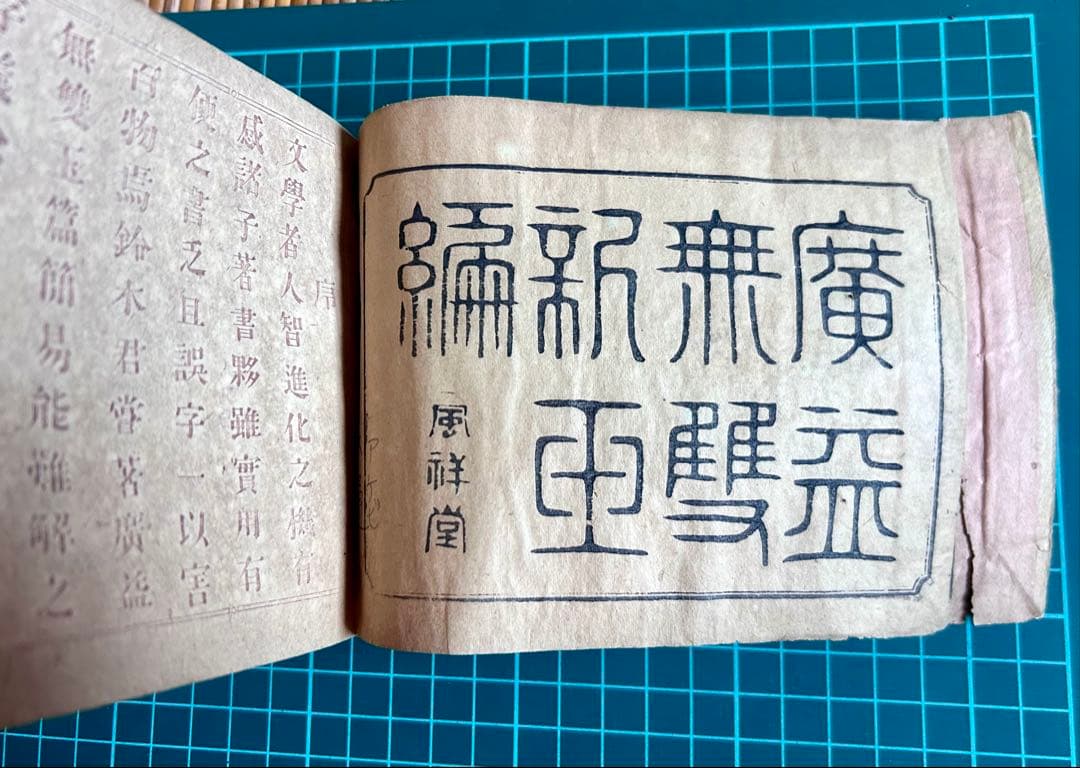 廣益
無雙
新玉
編
風祥堂
序
文學者人智進化之機有
感諸子著書夥雖實用有
便之書乏且誤字一以害
百物焉鈴木君嘗著廣益
無雙玉篇簡易能難解之
字義